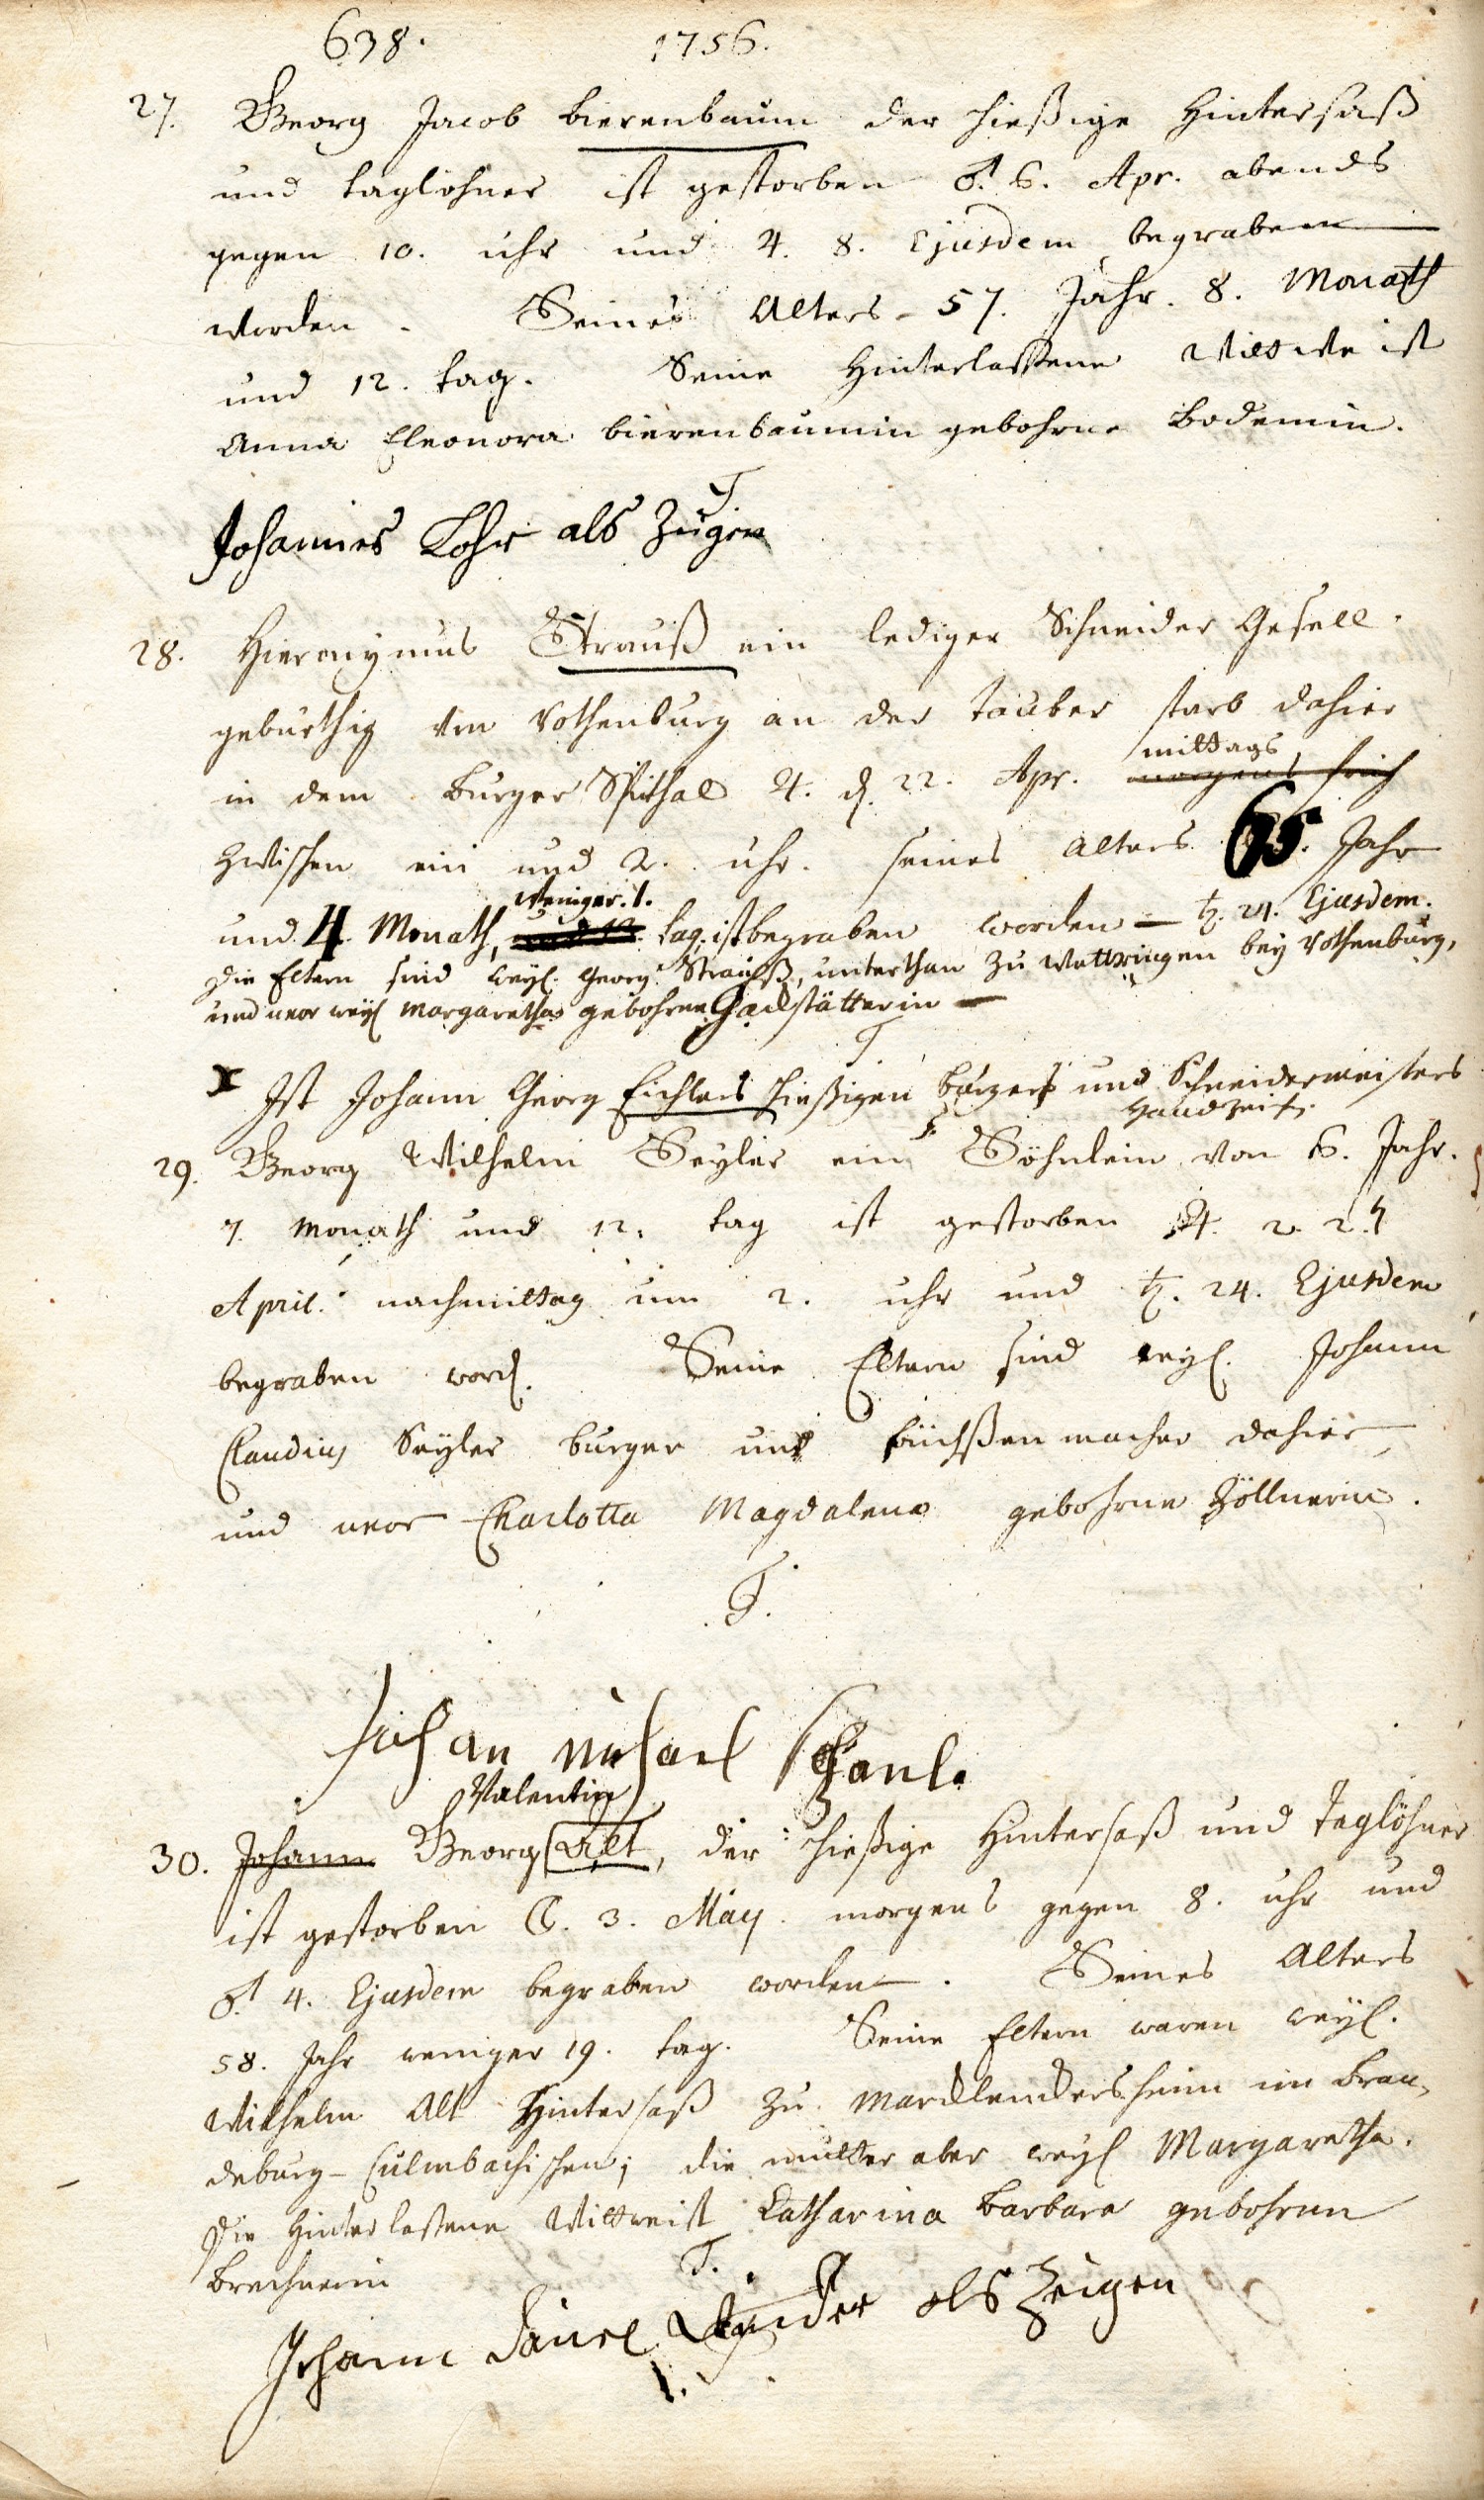 638. 1756.
27. Georg Jacob Bierenbaum der hießige Hintersaß
und taglöhner ist gestorben ♂. 6. Apr. abends
gegen 10. uhr und ♃. 8. Ejusdem begraben
worden. Seines Alters 57. Jahr. 8. Monath
und 12. tag. Seine Hinterlassene Wittwe ist
Anna Eleonora bierenbaumin gebohrne Bodemin.
T
Johannes Lohr als Zugen
28. Hieronymus Strauß ein lediger Schneider Gesell.
gebürthig von Rothenburg an der Tauber starb dahier
mittags
in dem Burger Spithal ♃. d. 22. Apr. morgens früh
zwischen ein und 2. uhr. seines alters 65. Jahr
weniger. 1.
und 4. Monath, tag. ist begraben worden ♄. 24. Ejusdem.
Die Eltern sind weyl. Georg Strauß, unterthan zu Wettringen bey Rothenburg,
und uxor weyl Margaretha gebohrne Gackstätterin
T
X Ist Johann Georg Eichlers hießigen burgers und Schneidermeisters
Handzeich.
29. Georg Wilhelm Seyler ein Söhnlein von 6. Jahr.
7. Monath und 12. tag ist gestorben ♃. 22.
April. nachmittag um 2. uhr und ♄. 24. Ejusdem
begraben word. Seine Eltern sind weyl. Johann
Claudius Seyler burger und büchßenmacher dahier
und uxor Charlotta Magdalena gebohrne Zöllnerin.
T.
Johan Michael
Valentin
30. Johann Georg Alt, der hießige Hintersaß und Taglöhner
ist gestorben ☾. 3. May. morgens gegen 8. uhr und
♂. 4. Ejusdem begraben worden. Seines Alters
58. Jahr weniger 19. tag. Seine Eltern waren weyl.
Wilhelm Alt Hintersaß zu im Bran„
deburg-Culmbachischen; die mutter aber weyl Margaretha.
Die Hinterlassene Wittwe ist Catharina Barbara gebohrne
T.
Johann als Zeugen